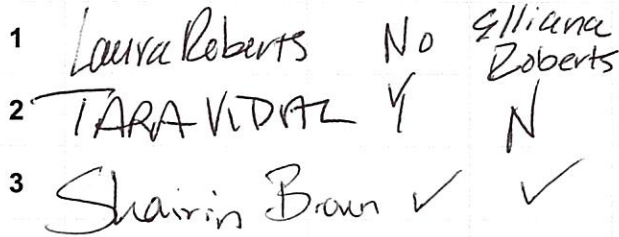 1 Laura Roberts No Elliana Roberts
2 TARA VIDAL Y N
3 Shairin Brown ✓ ✓